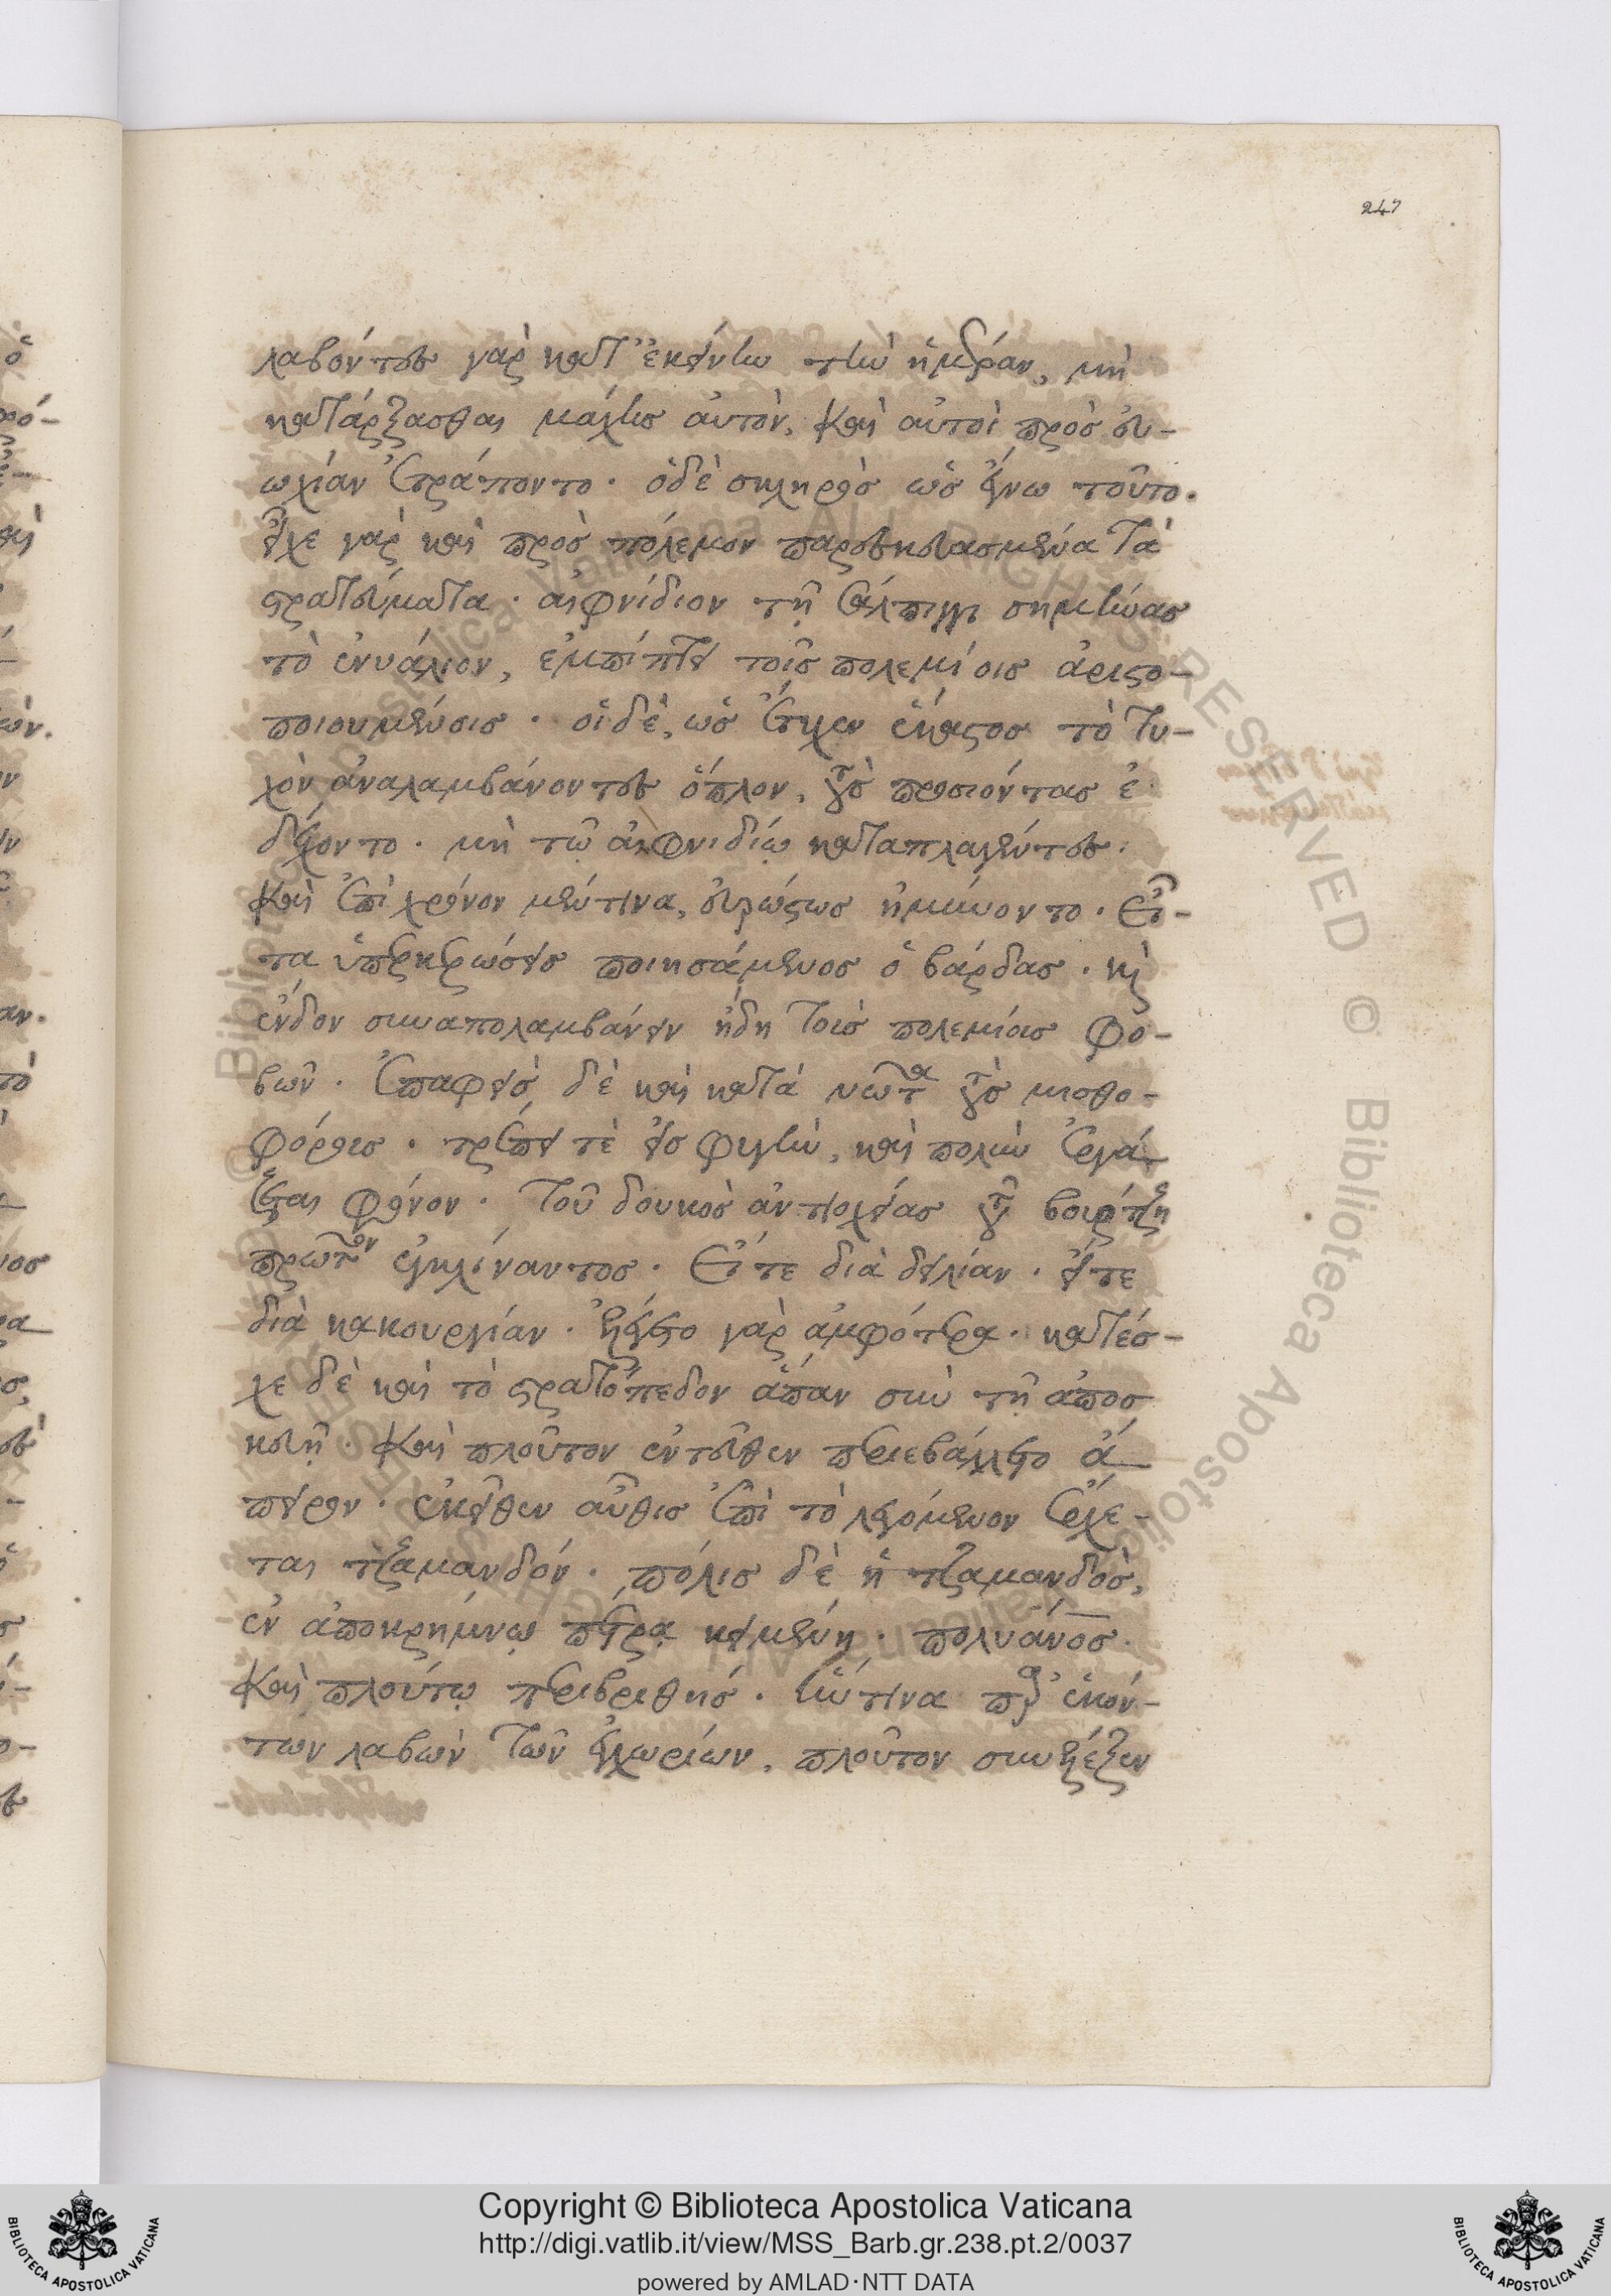 247
λαβόντες γὰρ κατ' ἐκείνην τὴν ἡμέραν, μὴ
κατάρξασθαι μάχης αὐτὸν, καὶ αὐτοὶ πρὸς εὐ-
ωχίαν ἐτράποντο. ὁδὲ σκληρὸς ὡς ἔγνω τοῦτο.
εἶχε γὰρ καὶ πρὸς πόλεμον παρεσκευασμένα τὰ
στρατεύματα. αἰφνίδιον τῇ σάλπιγγι σημήνας
τὸ ἐνυάλιον, ἐμπίπτει τοῖς πολεμίοις ἀριστο-
ποιουμένοις. οἱ δὲ, ὡς ἔτυχεν ἕκαστος τὸ τυ-
χὸν ἀναλαμβάνοντες ὅπλον, τοὺς προσιόντας ἐ
δέχοντο. μὴ τῷ αἰφνιδίῳ καταπλαγέντες.
καὶ ἐπὶ χρόνον μέντινα, εὐρώστως ἠμύνοντο. Εἶ-
τα ὑπερκερώσεις ποιησάμενος ὁ βάρδας. κὶ
ἔνδον συναπολαμβάνειν ἤδη τοὺς πολεμίους φο-
βῶν. ἐπαφεὶς δὲ καὶ κατὰ νῶτα τοὺς μισθο-
φόρους. τρέπει τὲ εἰς φυγὴν, καὶ πολὺν ἐργά
ζεται φόνον. τοῦ δουκὸς ἀντιοχείας τοῦ βούρτζη
πρῶτον ἐγκλίναντος. Εἴτε διὰ δειλίαν. εἴτε
διὰ κακουργίαν. ἐλέγετο γὰρ ἀμφότερα. κατέσ-
χε δὲ καὶ τὸ στρατόπεδον ἅπαν σὺν τῇ ἀποσ
κευῇ. καὶ πλοῦτον ἐντεῦθεν περιεβάλλετο ἄ
πειρον. ἐκεῖθεν αὖθις ἐπὶ τὸ λεγόμενον ἔρχε-
ται τζαμανδόν. πόλις δὲ ἡ τζαμανδὸς,
ἐν ἀποκρήμνῳ πέτρᾳ κειμένη. πολυάνος.
καὶ πλούτῳ περιβριθής. ἥν τινα παρ' ἑκόν-
των λαβὼν τῶν ἐγχωρίων, πλοῦτον συνέλεξεν
Copyright © Biblioteca Apostolica Vaticana
http://digi.vatlib.it/view/MSS_Barb.gr.238.pt.2/0037
powered by AMLAD·NTT DATA
BIBLIOTECA APOSTOLICA VATICANA
BIBLIOTECA APOSTOLICA VATICANA